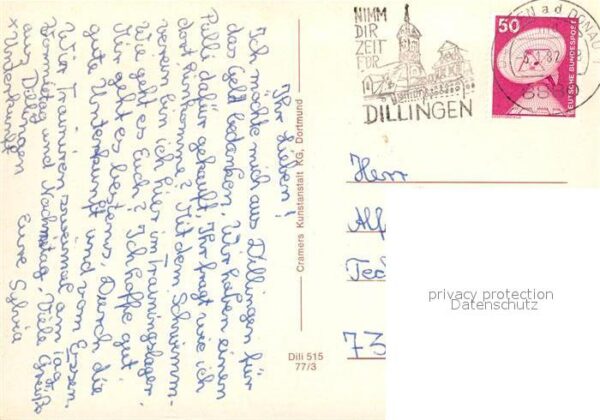 Ihr Lieben!
Ich möchte mich aus Dillingen für
das Geld bedanken. Wir haben einen
Pulli dafür gekauft. Ihr fragt wie ich
dort hinkomme? Mit dem Schwimm-
verein bin ich hier im Trainingslager.
Wie geht es Euch? Ich hoffe gut.
Mir geht es bestens. Durch die
gute Unterkunft und vom Essen.
Wir trainieren zweimal am Tag.
Vormittag und Nachmittag. Viele Grüße
aus Dillingen Eure Sylvia
x Unterkunft
Cramers Kunstanstalt KG, Dortmund
Dili 515
77/3
NIMM
DIR
ZEIT
FÜR
DILLINGEN
EN a.d. DONAU 1
50
DEUTSCHE BUNDESPOST
Herr
Alf
Tec
73
privacy protection
Datenschutz